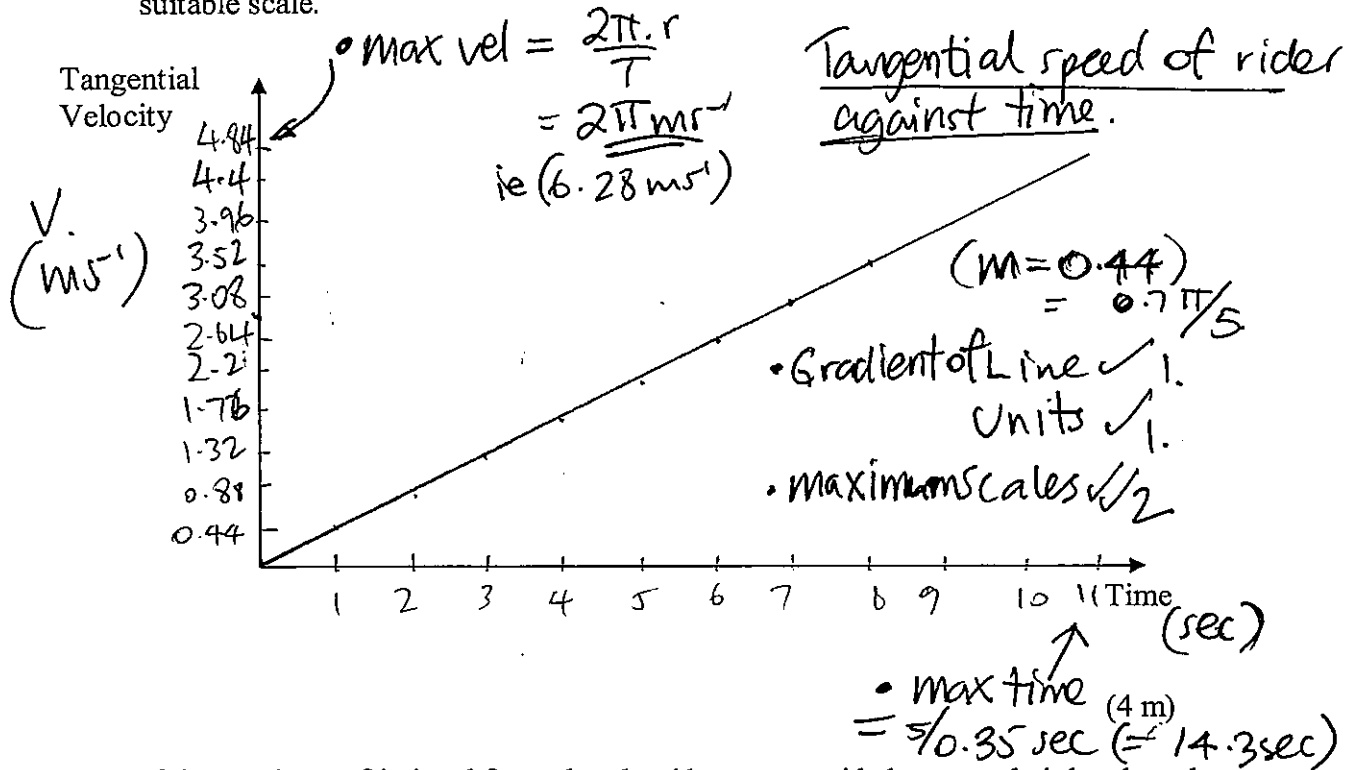 suitable scale.
• max vel = 2π.r / T
= 2π ms⁻¹
ie (6.28 ms⁻¹)
Tangential speed of rider
against time.
Tangential
Velocity
V.
(ms⁻¹)
4.84
4.4
3.96
3.52
3.08
2.64
2.2
1.76
1.32
0.88
0.44
(m = 0.44)
= 0.7 π/5
• Gradient of Line ✓ 1.
Units ✓ 1.
• maximum scales ✓✓ 2
1 2 3 4 5 6 7 8 9 10 11 Time
(sec)
• max time
(4 m)
= 5/0.35 sec (= 14.3 sec)